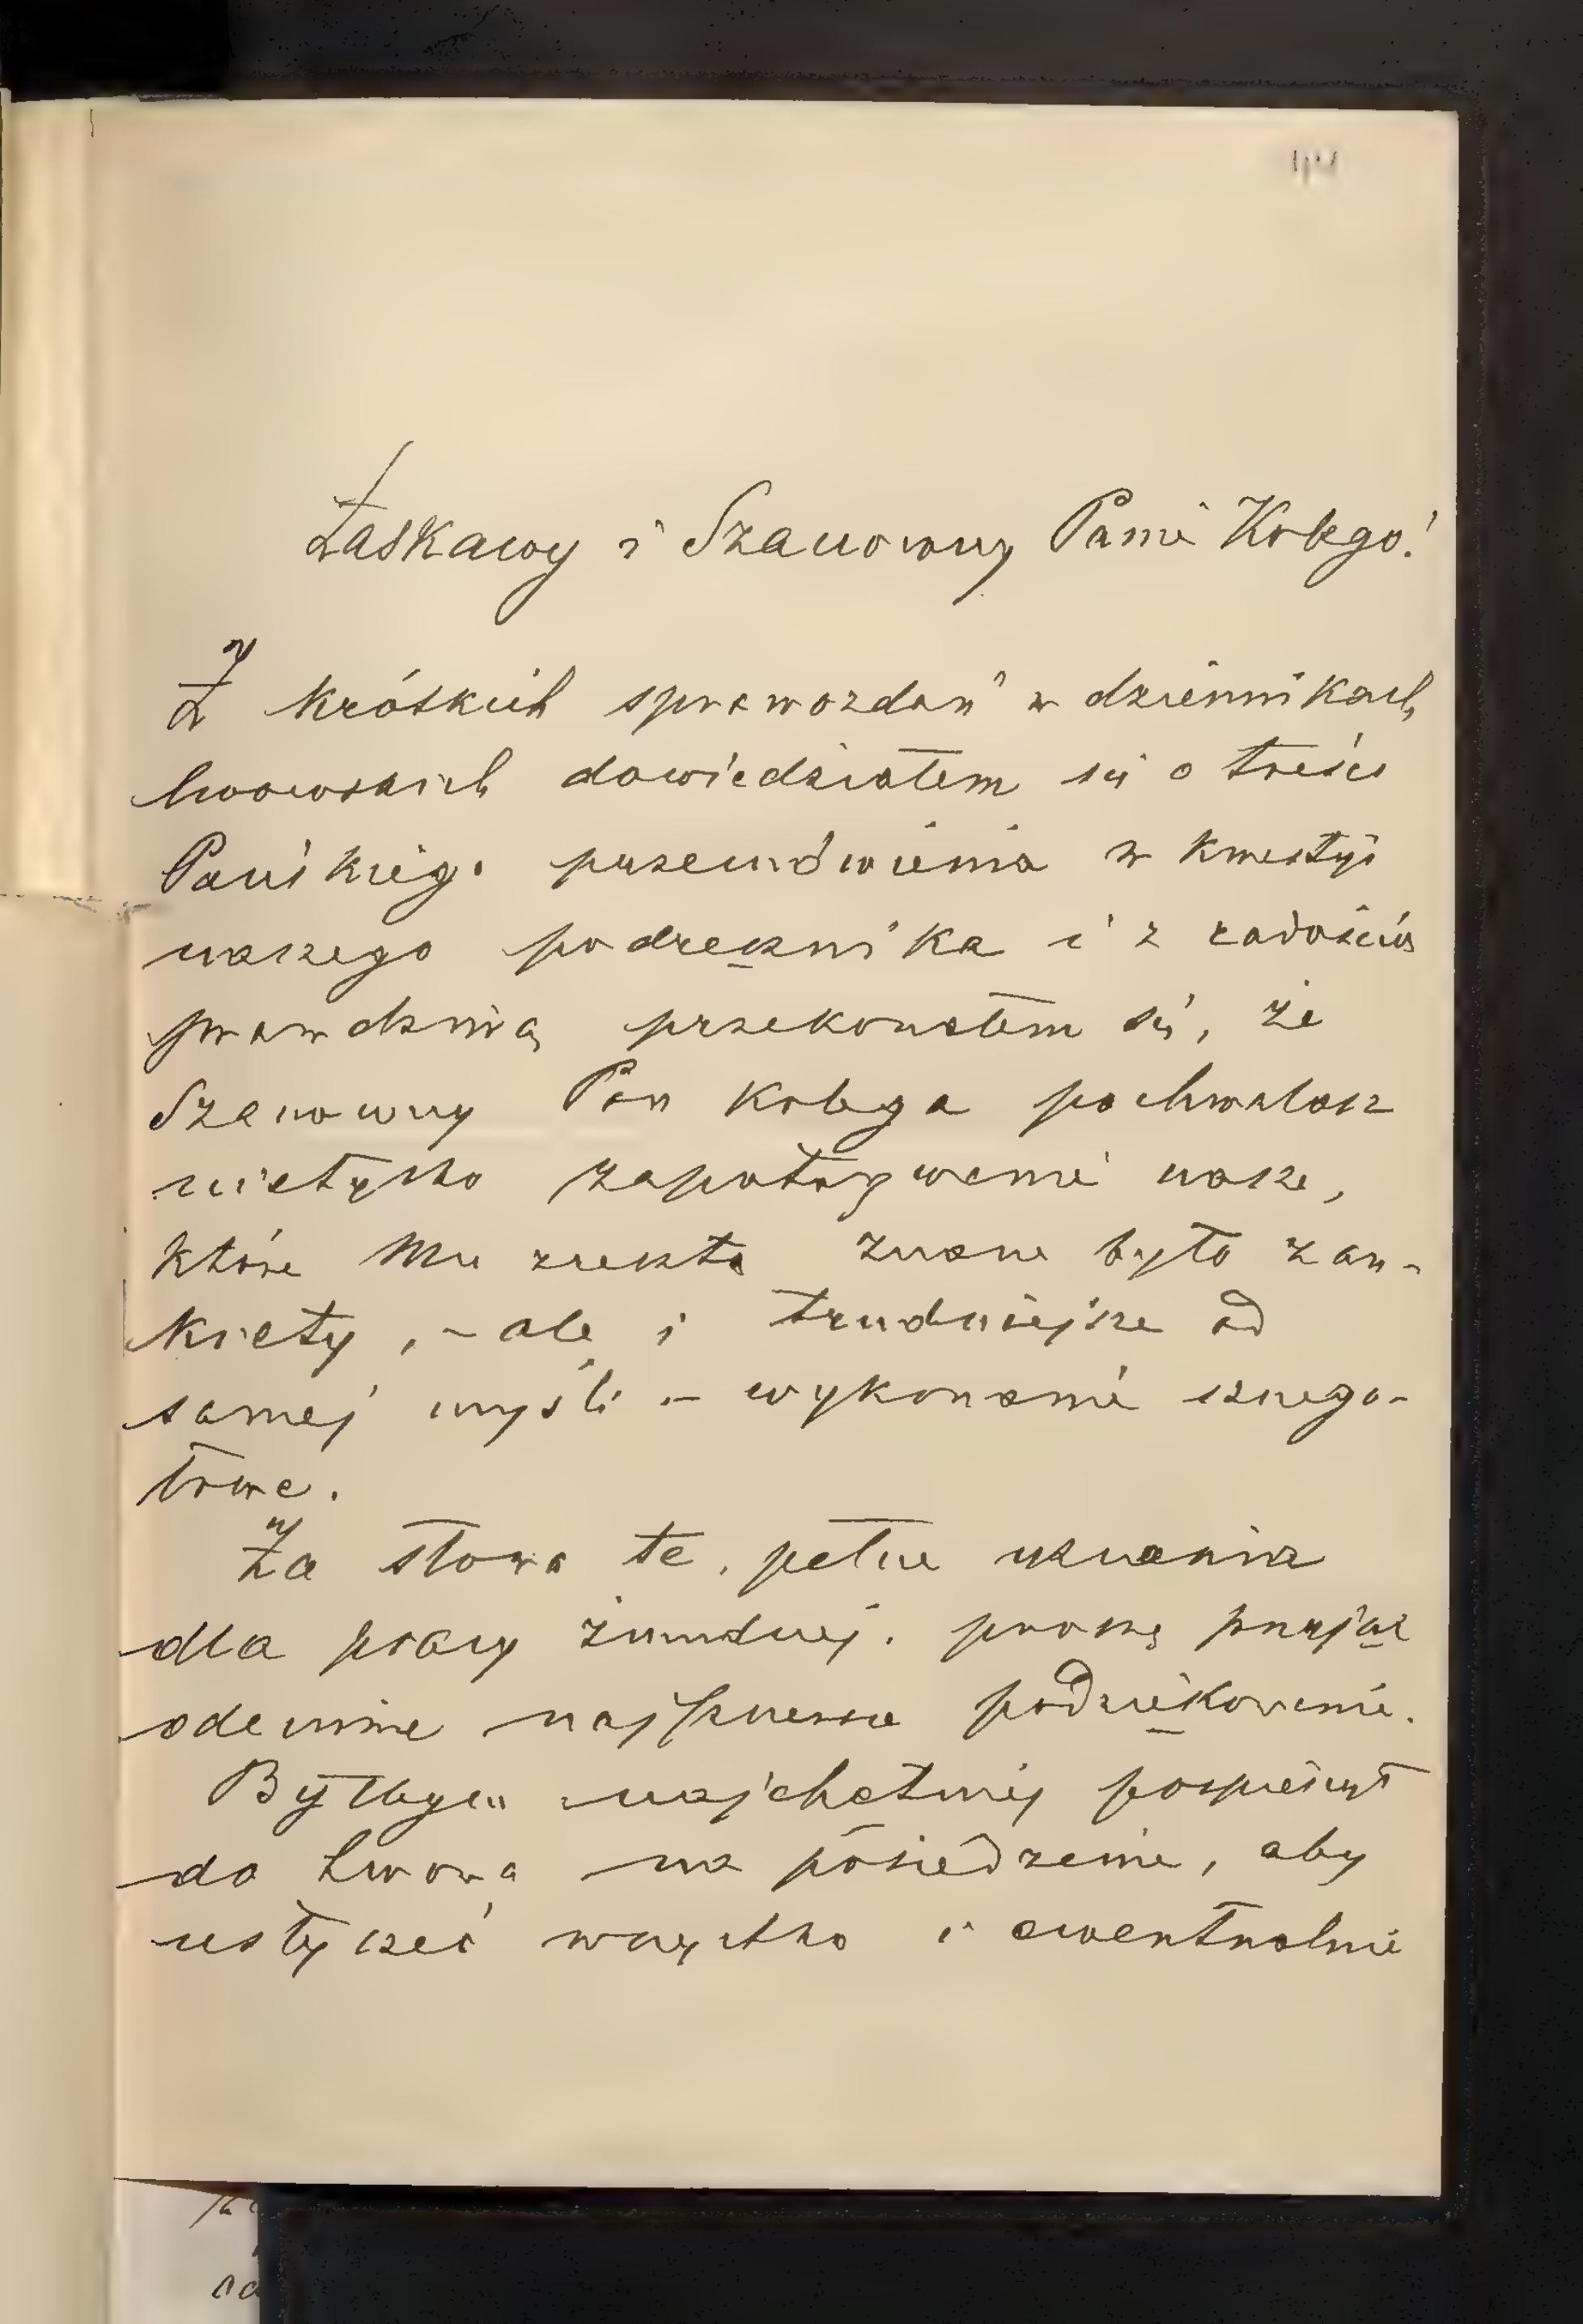 44
Łaskawy i Szanowny Panie Kolego!
Z krótkich sprawozdań w dziennikach
lwowskich dowiedziałem się o treści
Pańskiego przemówienia w kwestyi
naszego podręcznika i z radością
prawdziwą przekonałem się, że
Szanowny Pan Kolega pochwalasz
nietylko zapatrywanie nasze,
które Mu zresztą znane było z an-
kiety, – ale i trudniejsze od
samej myśli – wykonanie szczegó-
łowe.
Za słowa te, pełne uznania
dla pracy żmudnej, proszę przyjąć
odemnie najszczersze podziękowanie.
Byłbym najchętniej pospieszył
do Lwowa na posiedzenie, aby
usłyszeć wszystko i ewentualnie